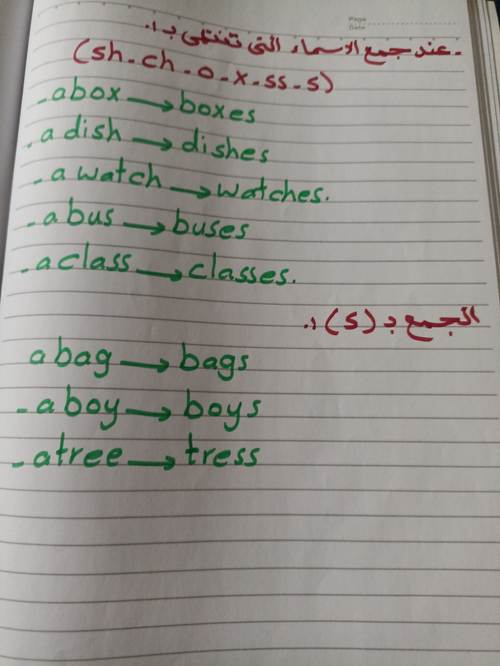 Page
Date
- عند جمع الاسماء التى تنتهى بـ :.
(sh - ch - o - x - ss - s)
- a box → boxes
- a dish → dishes
- a watch → watches.
- a bus → buses
- a class → classes.
الجمع بـ (s) :.
a bag → bags
- a boy → boys
- a tree → tress